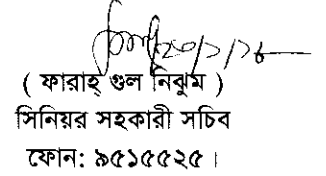 ২০/১/১৬
( ফারাহ্ গুল নিঝুম )
সিনিয়র সহকারী সচিব
ফোন: ৯৫১৫৫২৫ ।